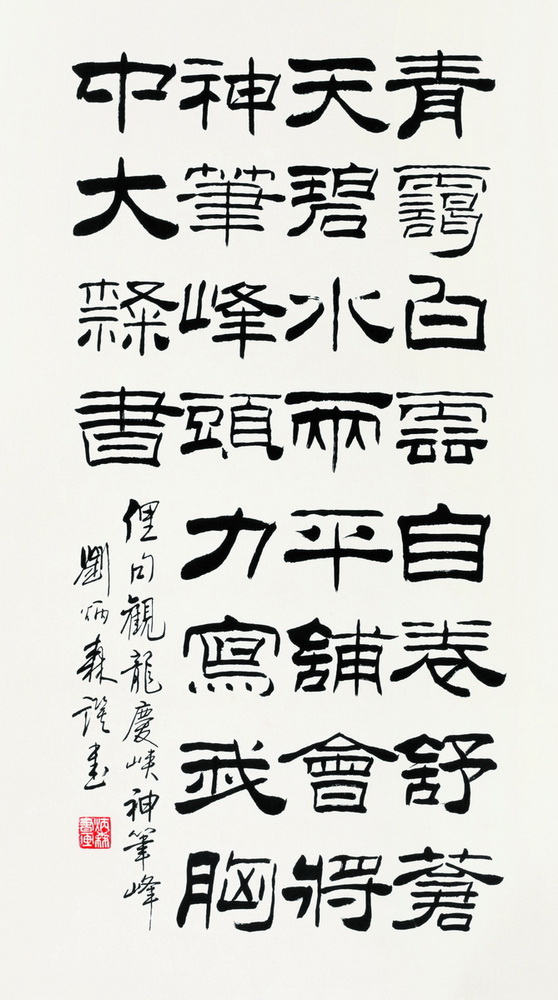 青靄白雲自卷舒蒼
天碧水兩平舖會將
神筆峰頭力寫我胸
中大隸書
俚句觀龍慶峽神筆峰
劉炳森譔書